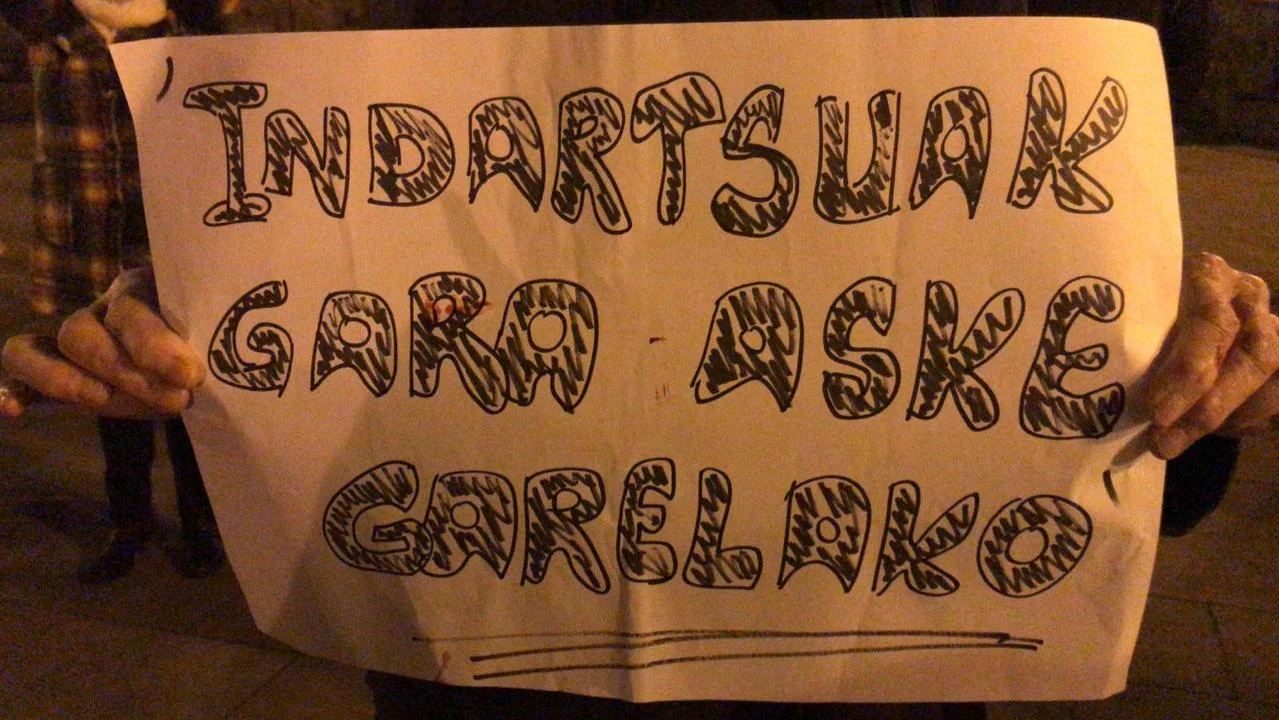 'INDARTSUAK
GARA ASKE
GARELAKO'